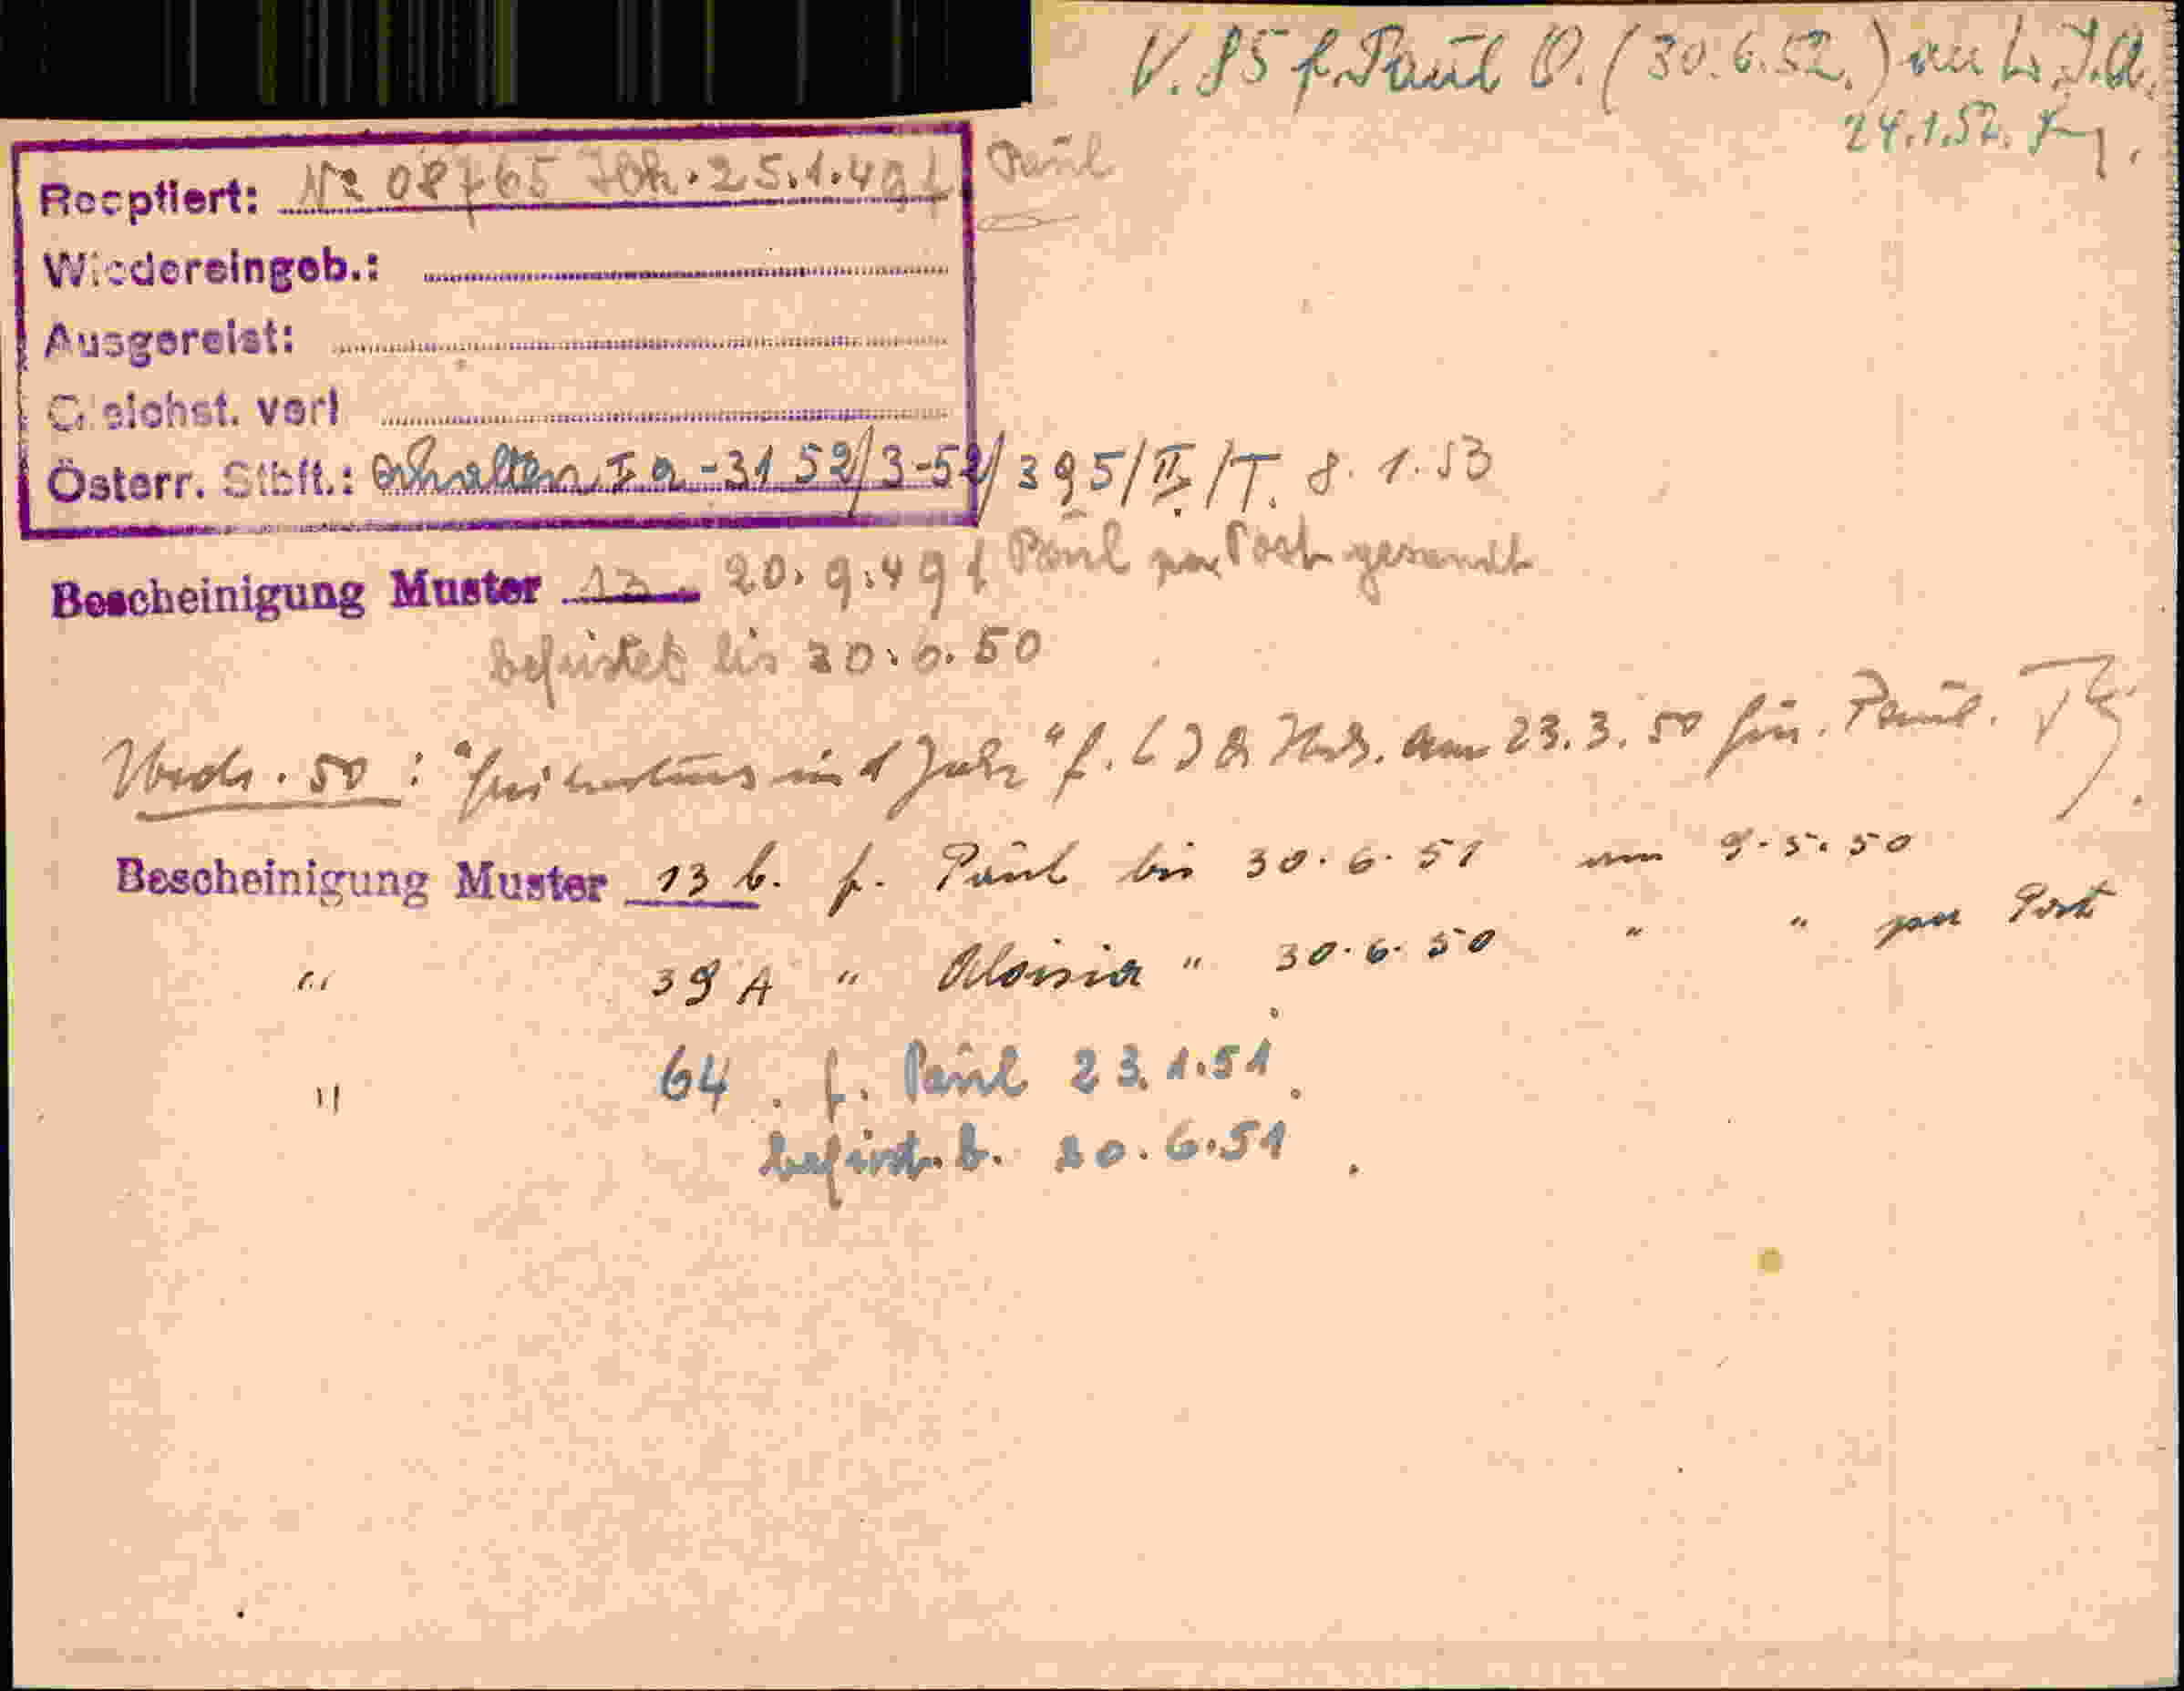 V. 85 f. Paul O. (30.6.52.) an L. J. A.
24.1.52.
Recptiert: № 08765 Jbk. 25.1.49 f Paul
Wiedereingeb.:
Ausgereist:
Gleichst. verl
Österr. Stbft.: erhalten I a -31 52/3-52/395/II./T. 8.1.53
Bescheinigung Muster 13 20.9.49 f Paul per Post gesandt
befristet bis 30.6.50
50: in 1 Jahr" f. am 23.3.50 für. Paul.
Bescheinigung Muster 13 b. f. Paul bis 30.6.51 am 9.5.50
" 39 A " Aloisia " 30.6.50 " " per Post
" 64. f. Paul 23.1.51.
befrist. b. 30.6.51.